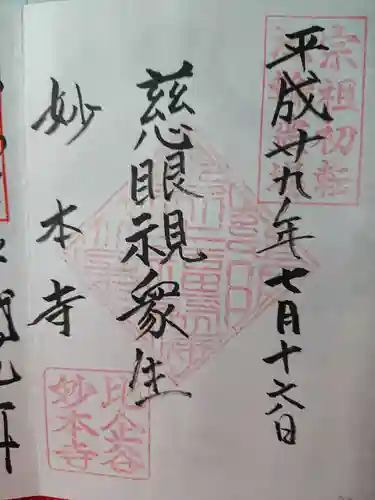 平成廿九年七月十六日
慈眼視衆生
妙本寺
宗祖初転
比企谷
妙本寺